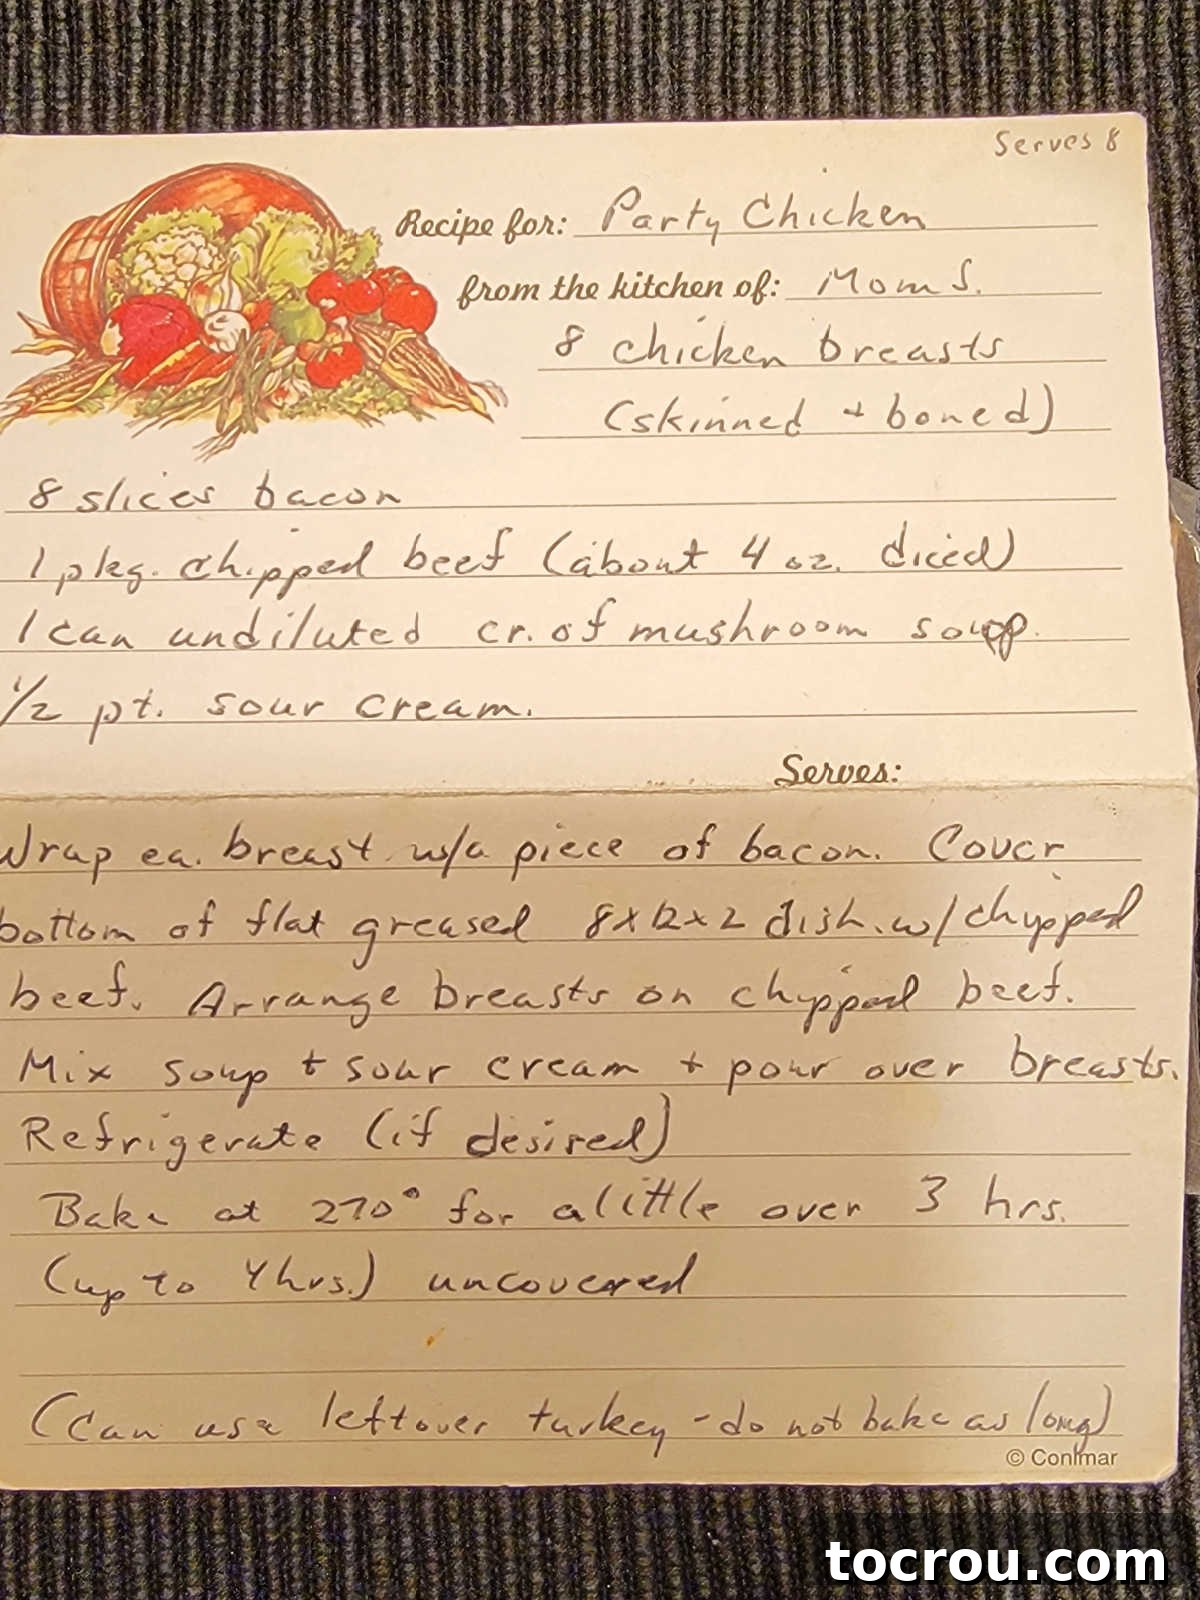 Serves 8
Recipe for: Party Chicken
from the kitchen of: Mom S.
8 chicken breasts
(skinned + boned)
8 slices bacon
1 pkg. chipped beef (about 4 oz. diced)
1 can undiluted cr. of mushroom soup.
1/2 pt. sour cream.
Serves:
Wrap ea. breast w/a piece of bacon. Cover
bottom of flat greased 8x12x2 dish. w/chipped
beef. Arrange breasts on chipped beef.
Mix soup + sour cream + pour over breasts.
Refrigerate (if desired)
Bake at 270° for a little over 3 hrs.
(up to 4 hrs.) uncovered
(Can use leftover turkey - do not bake as long)
© Conimar
tocrou.com